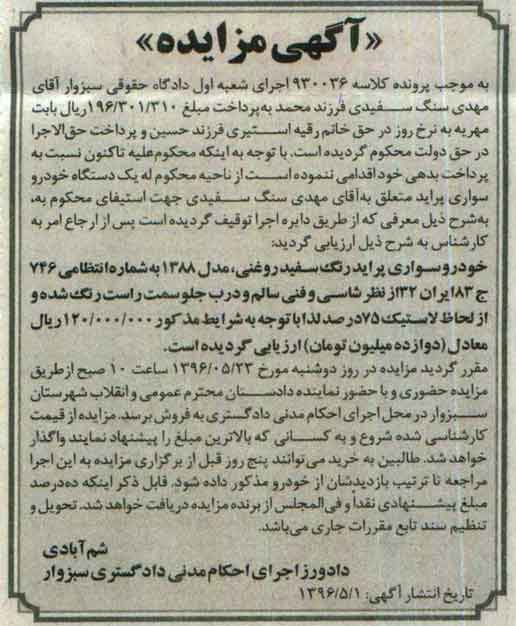 «آگهی مزایده»
به موجب پرونده کلاسه ۹۳۰۰۳۶ اجرای شعبه اول دادگاه حقوقی سبزوار آقای
مهدی سنگ سفیدی فرزند محمد به پرداخت مبلغ ۱۹۶/۳۰۱/۳۱۰ ریال بابت
مهریه به نرخ روز در حق خانم رقیه استیری فرزند حسین و پرداخت حق‌الاجرا
در حق دولت محکوم گردیده است. با توجه به اینکه محکوم‌علیه تاکنون نسبت به
پرداخت بدهی خود اقدامی ننموده است از ناحیه محکوم له یک دستگاه خودرو
سواری پراید متعلق به آقای مهدی سنگ سفیدی جهت استیفای محکوم به،
به‌شرح ذیل معرفی که از طریق دایره اجرا توقیف گردیده است پس از ارجاع امر به
کارشناس به شرح ذیل ارزیابی گردید:
خودرو سواری پراید رنگ سفید روغنی، مدل ۱۳۸۸ به شماره انتظامی ۷۴۶
ج ۸۳ ایران ۳۲ از نظر شاسی و فنی سالم و درب جلو سمت راست رنگ شده و
از لحاظ لاستیک ۷۵ درصد لذا با توجه به شرایط مذکور ۱۲۰/۰۰۰/۰۰۰ ریال
معادل (دوازده میلیون تومان) ارزیابی گردیده است.
مقرر گردید مزایده در روز دوشنبه مورخ ۱۳۹۶/۰۵/۲۳ ساعت ۱۰ صبح از طریق
مزایده حضوری و با حضور نماینده دادستان محترم عمومی و انقلاب شهرستان
سبزوار در محل اجرای احکام مدنی دادگستری به فروش برسد. مزایده از قیمت
کارشناسی شده شروع و به کسانی که بالاترین مبلغ را پیشنهاد نمایند واگذار
خواهد شد. طالبین به خرید می‌توانند پنج روز قبل از برگزاری مزایده به این اجرا
مراجعه تا ترتیب بازدیدشان از خودرو مذکور داده شود. قابل ذکر اینکه ده‌درصد
مبلغ پیشنهادی نقداً و فی‌المجلس از برنده مزایده دریافت خواهد شد. تحویل و
تنظیم سند تابع مقررات جاری می‌باشد.
شم‌آبادی
دادورز اجرای احکام مدنی دادگستری سبزوار
تاریخ انتشار آگهی: ۱۳۹۶/۵/۱